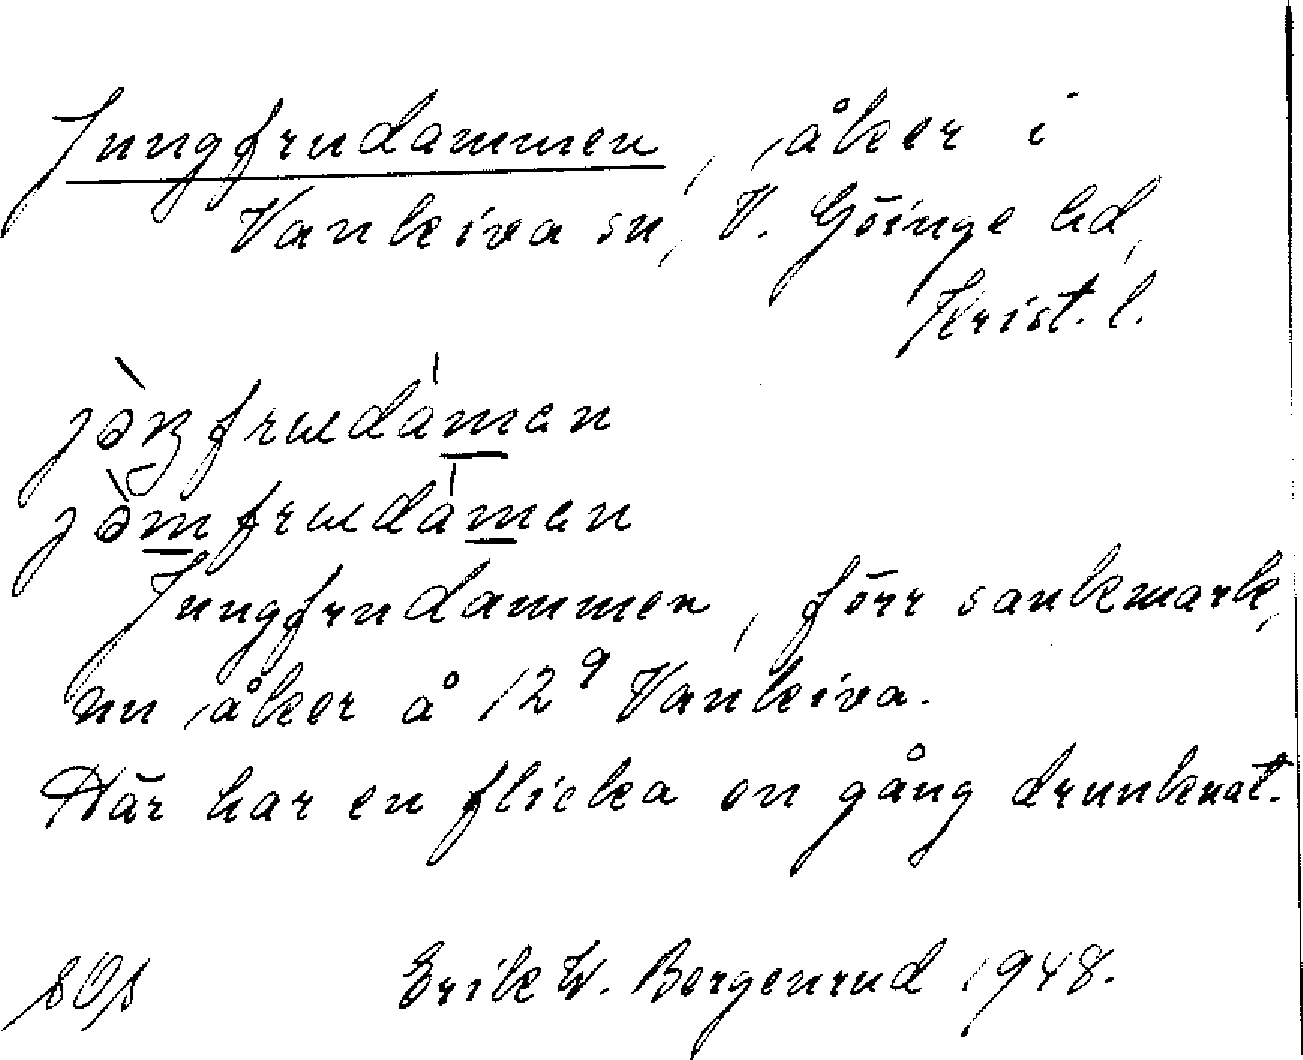 Jungfrudammen, åker i
Vankiva sn, V. Göinge hd,
Krist. l.
Jungfrudammen, förr sankmark,
nu åker å 12⁹ Vankiva.
Där har en flicka en gång drunknat.
Erik W. Bergenrud 1948.